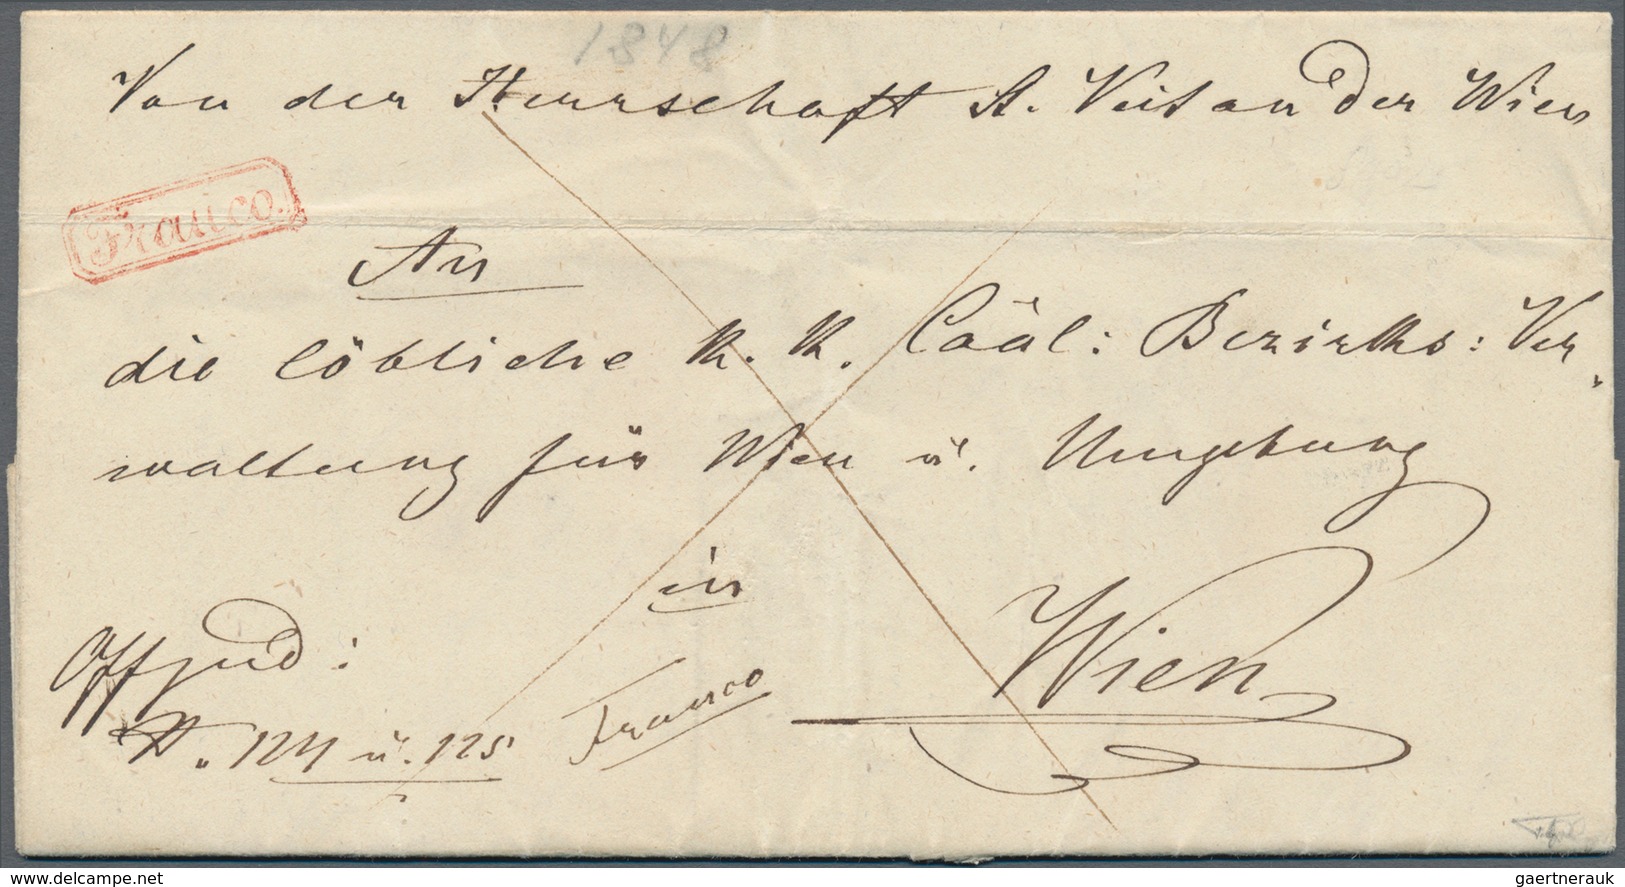 1848
Von der Herrschaft St. Veit an der Wien
Franco.
An
die löbliche k. k. Cääl: Bezirks: Ver,
waltung für Wien u. Umgebung
in
Wien
N. 124 u. 125
Franco
www.delcampe.net
gaertnerauk